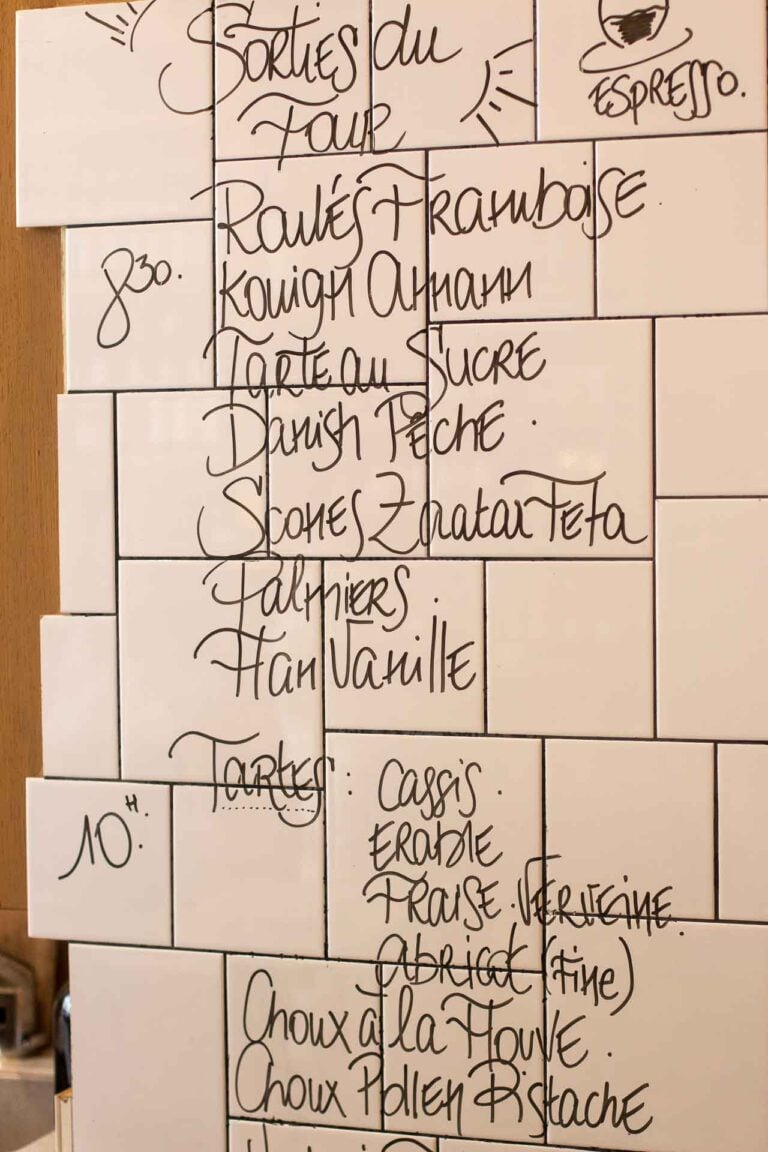 Sorties du
Four
Espresso.
8 30.
Roulés Framboise.
Kouign Amann
Tarte au Sucre
Danish Pêche.
Scones Zaatar Feta
Palmiers.
Flan Vanille
10 H.
Tartes: Cassis.
Erable
Fraise. Verveine.
Abricot (Fine)
Choux à la Flouve.
Choux Pollen Pistache